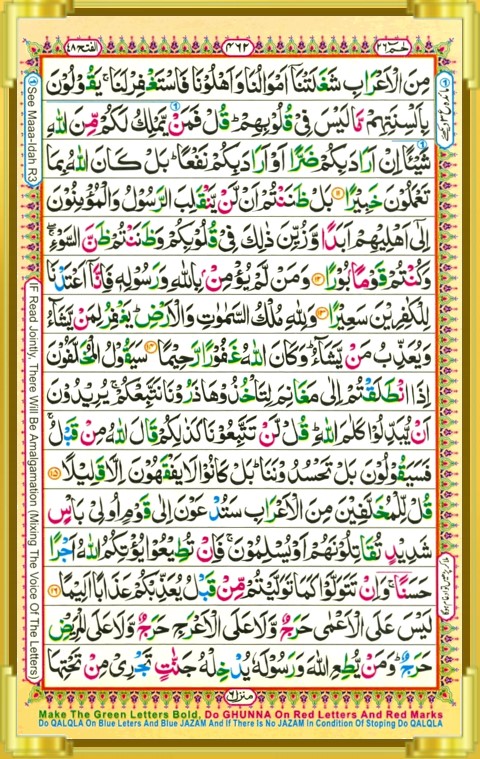 الفتح ٤٨
٤٦٢
حٰم ٢٦
مِنَ الْاَعْرَابِ شَغَلَتْنَاۤ اَمْوَالُنَا وَاَهْلُوْنَا فَاسْتَغْفِرْ لَنَا ۚ يَقُوْلُوْنَ
بِاَلْسِنَتِهِمْ مَّا لَيْسَ فِيْ قُلُوْبِهِمْ ؕ قُلْ فَمَنْ يَّمْلِكُ لَكُمْ مِّنَ اللّٰهِ
شَيْئًا اِنْ اَرَادَ بِكُمْ ضَرًّا اَوْ اَرَادَ بِكُمْ نَفْعًا ؕ بَلْ كَانَ اللّٰهُ بِمَا
تَعْمَلُوْنَ خَبِيْرًا ۝۱۱ بَلْ ظَنَنْتُمْ اَنْ لَّنْ يَّنْقَلِبَ الرَّسُوْلُ وَالْمُؤْمِنُوْنَ
اِلٰۤى اَهْلِيْهِمْ اَبَدًا وَّزُيِّنَ ذٰلِكَ فِيْ قُلُوْبِكُمْ وَظَنَنْتُمْ ظَنَّ السَّوْءِ ۖۚ
وَكُنْتُمْ قَوْمًۢا بُوْرًا ۝۱۲ وَمَنْ لَّمْ يُؤْمِنْۢ بِاللّٰهِ وَرَسُوْلِهٖ فَاِنَّاۤ اَعْتَدْنَا
لِلْكٰفِرِيْنَ سَعِيْرًا ۝۱۳ وَلِلّٰهِ مُلْكُ السَّمٰوٰتِ وَالْاَرْضِ ؕ يَغْفِرُ لِمَنْ يَّشَآءُ
وَيُعَذِّبُ مَنْ يَّشَآءُ ؕ وَكَانَ اللّٰهُ غَفُوْرًا رَّحِيْمًا ۝۱۴ سَيَقُوْلُ الْمُخَلَّفُوْنَ
اِذَا انْطَلَقْتُمْ اِلٰى مَغَانِمَ لِتَاْخُذُوْهَا ذَرُوْنَا نَتَّبِعْكُمْ ۚ يُرِيْدُوْنَ
اَنْ يُّبَدِّلُوْا كَلٰمَ اللّٰهِ ؕ قُلْ لَّنْ تَتَّبِعُوْنَا كَذٰلِكُمْ قَالَ اللّٰهُ مِنْ قَبْلُ ۚ
فَسَيَقُوْلُوْنَ بَلْ تَحْسُدُوْنَنَا ؕ بَلْ كَانُوْا لَا يَفْقَهُوْنَ اِلَّا قَلِيْلًا ۝۱۵
قُلْ لِّلْمُخَلَّفِيْنَ مِنَ الْاَعْرَابِ سَتُدْعَوْنَ اِلٰى قَوْمٍ اُولِيْ بَاْسٍ
شَدِيْدٍ تُقَاتِلُوْنَهُمْ اَوْ يُسْلِمُوْنَ ۚ فَاِنْ تُطِيْعُوْا يُؤْتِكُمُ اللّٰهُ اَجْرًا
حَسَنًا ۚ وَاِنْ تَتَوَلَّوْا كَمَا تَوَلَّيْتُمْ مِّنْ قَبْلُ يُعَذِّبْكُمْ عَذَابًا اَلِيْمًا ۝۱۶
لَيْسَ عَلَى الْاَعْمٰى حَرَجٌ وَّلَا عَلَى الْاَعْرَجِ حَرَجٌ وَّلَا عَلَى الْمَرِيْضِ
حَرَجٌ ؕ وَمَنْ يُّطِعِ اللّٰهَ وَرَسُوْلَهٗ يُدْخِلْهُ جَنّٰتٍ تَجْرِيْ مِنْ تَحْتِهَا
See Maaa-Idah R3
IF Read Jointly, There Will Be Amalgamation (Mixing The Voice Of The Letters)
منزل ٦
Make The Green Letters Bold, Do GHUNNA On Red Letters And Red Marks
Do QALQLA On Blue Leters And Blue JAZAM And If There Is No JAZAM In Condition Of Stoping Do QALQLA